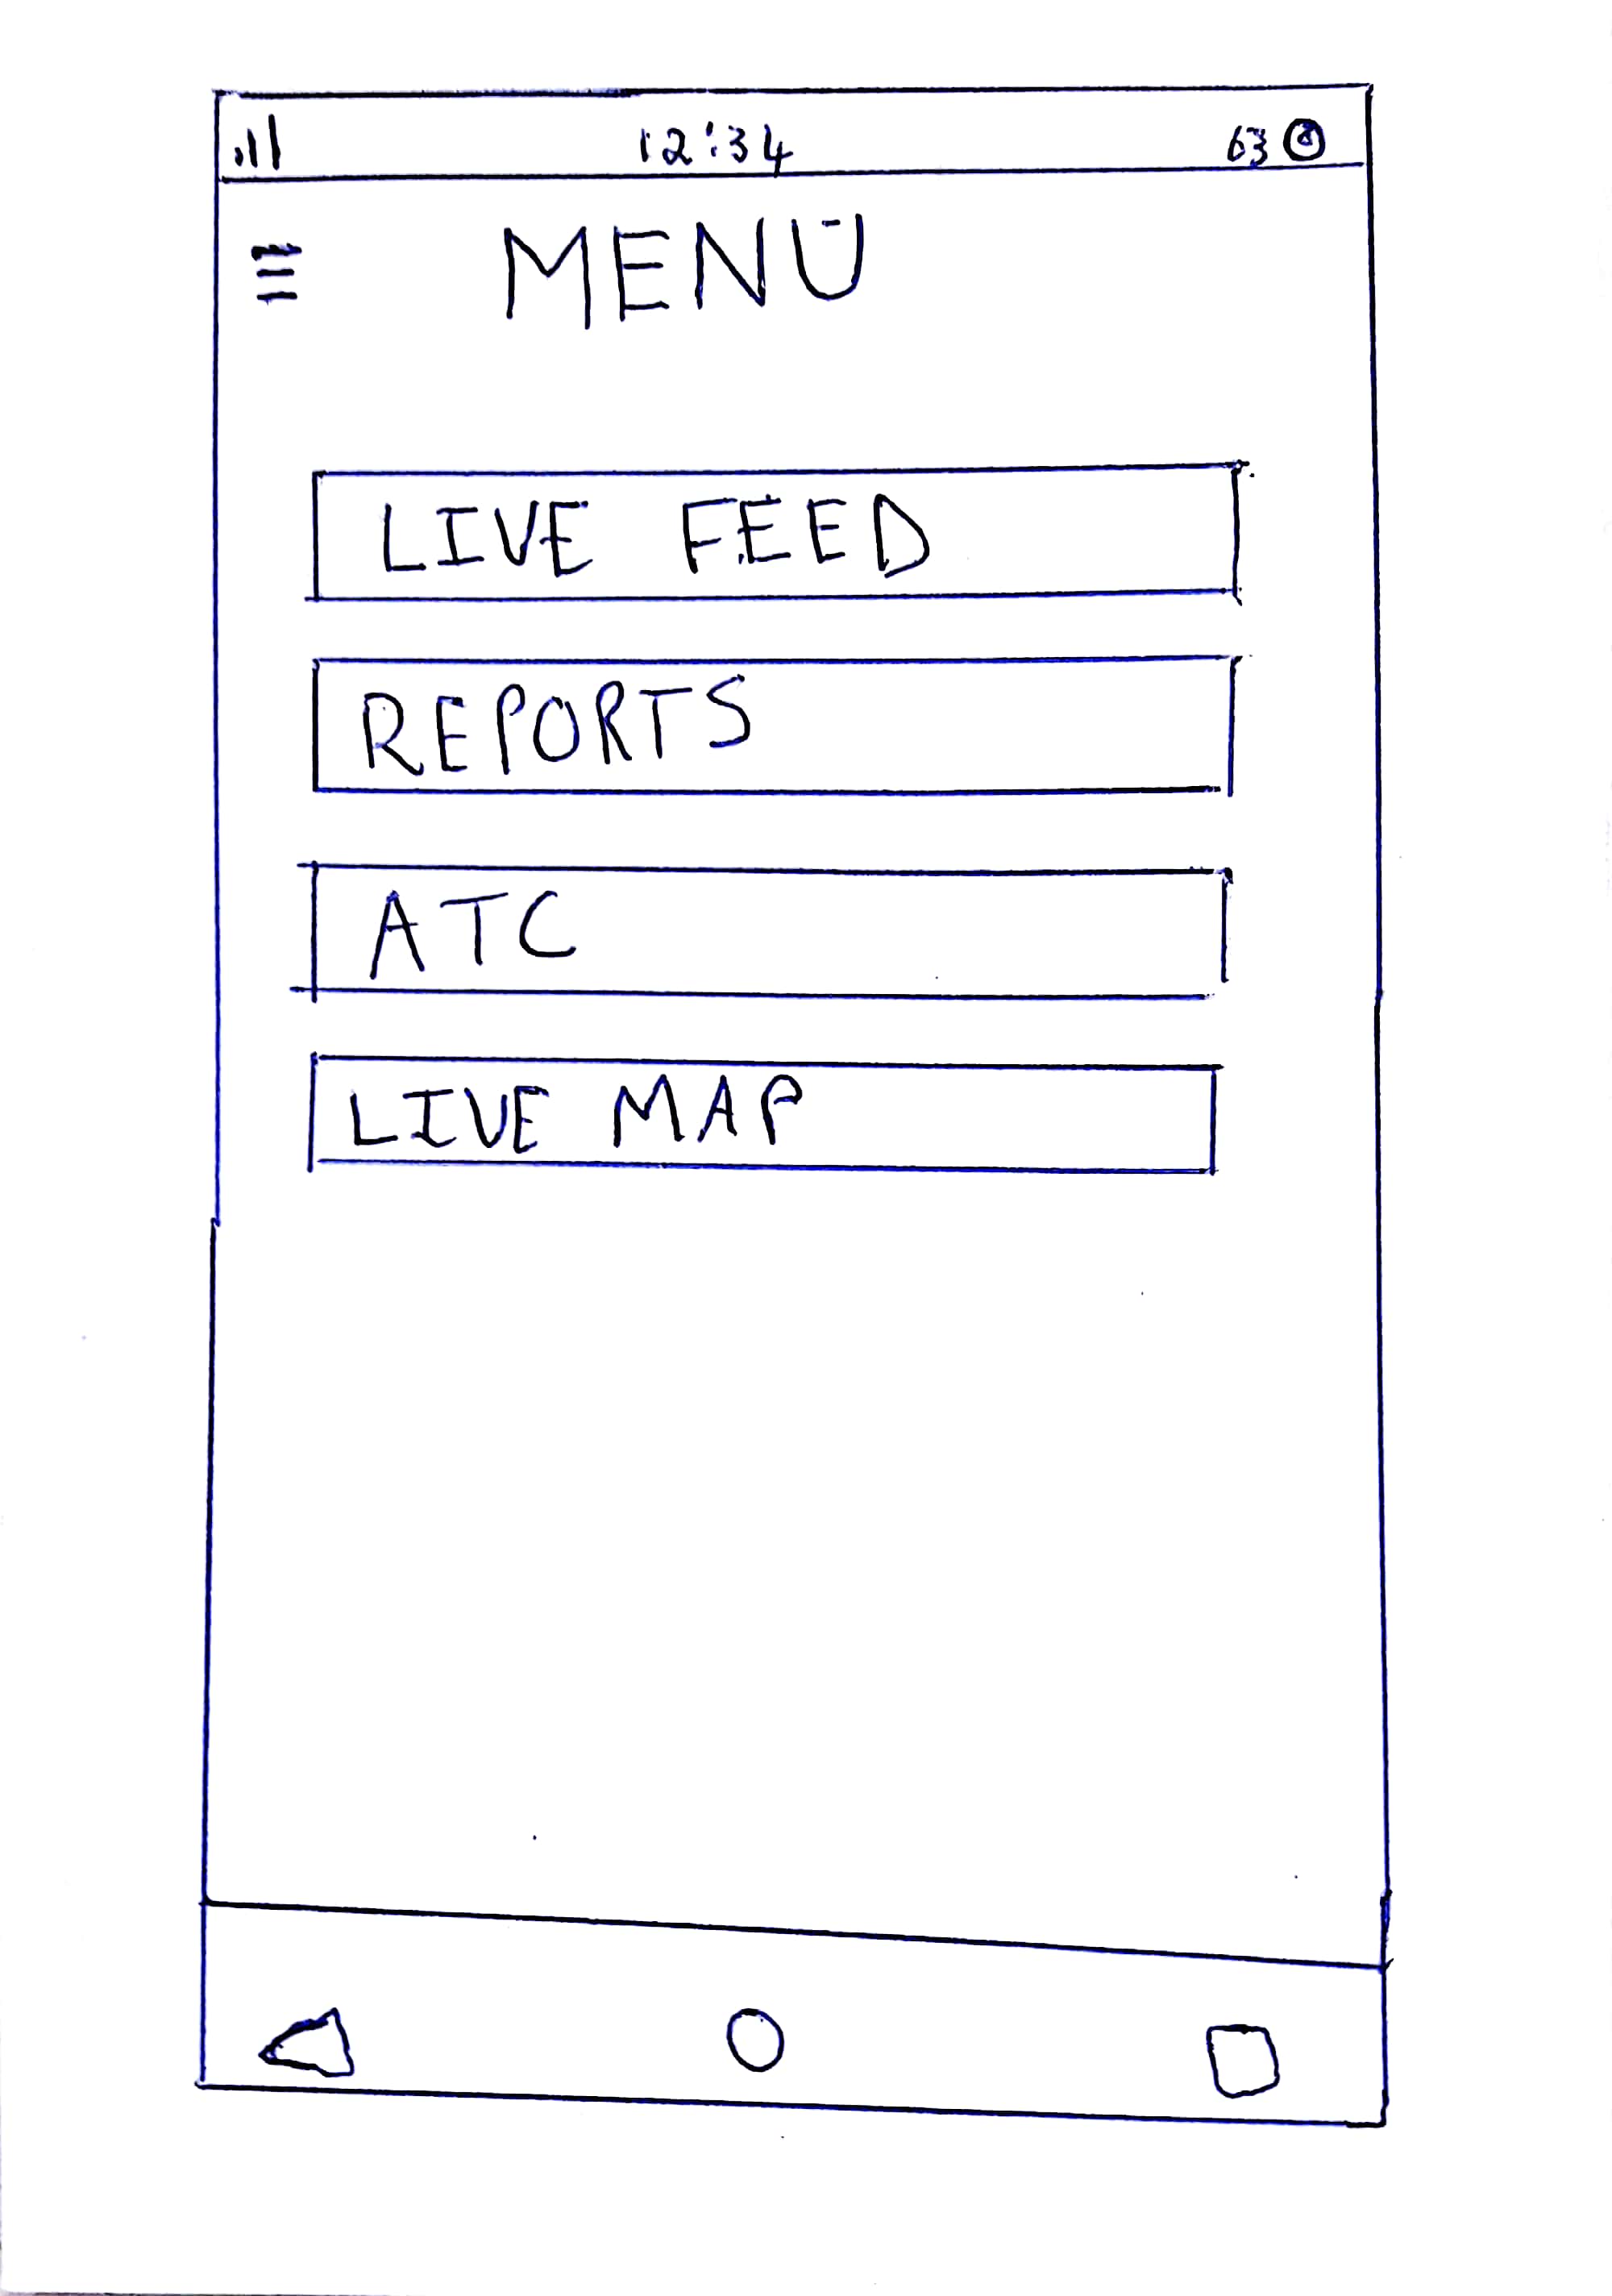 12:34 63
MENU
LIVE FEED
REPORTS
ATC
LIVE MAP